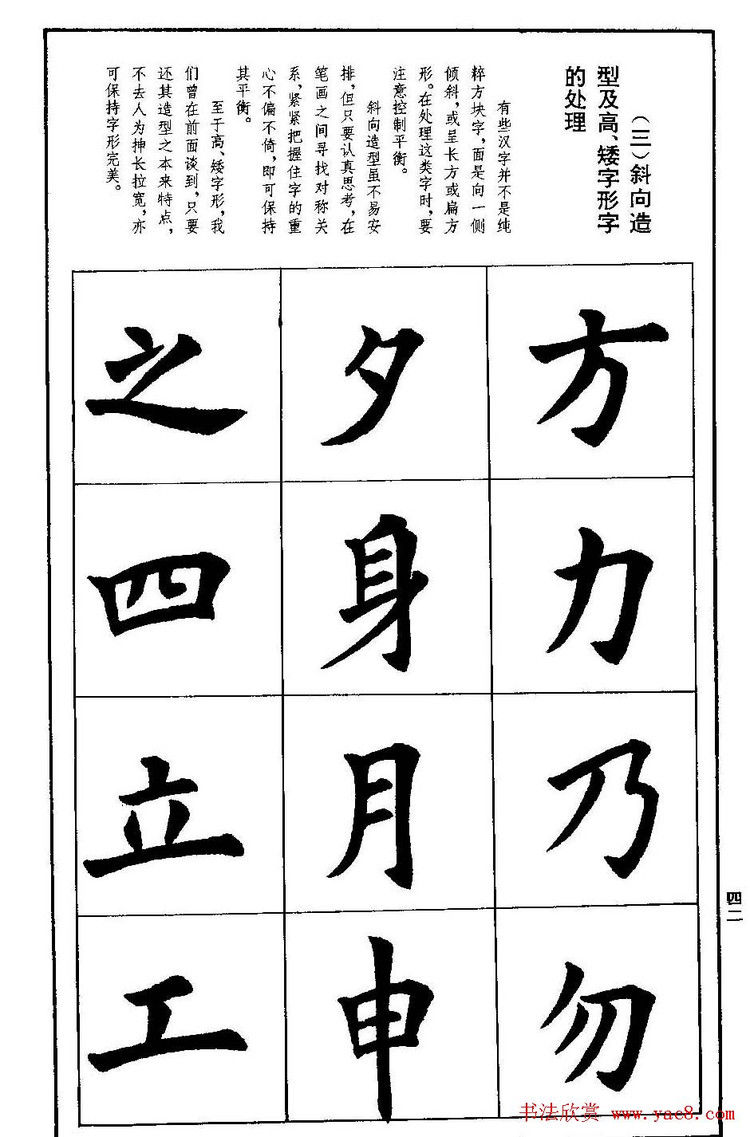 （三）斜向造
型及高、矮字形字
的处理
有些汉字并不是纯
粹方块字，面是向一侧
倾斜，或呈长方或扁方
形。在处理这类字时，要
注意控制平衡。
斜向造型虽不易安
排，但只要认真思考，在
笔画之间寻找对称关
系，紧紧把握住字的重
心不偏不倚，即可保持
其平衡。
至于高、矮字形，我
们曾在前面谈到，只要
还其造型之本来特点，
不去人为抻长拉宽，亦
可保持字形完美。
方
力
乃
勿
夕
身
月
申
之
四
立
工
四二
书法欣赏 www.yac8.com